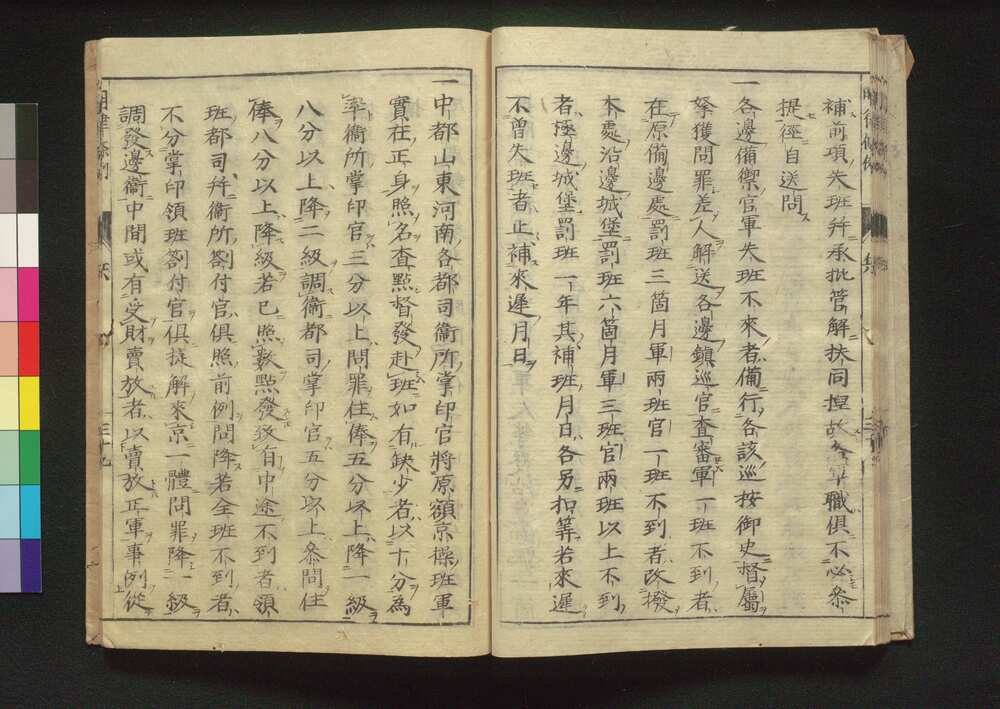 補前項失班并承批管解扶同捏故軍職俱不必叅
提徑自送問
一各邊備禦官軍失班不來者備行各該巡按御史督屬
拏獲問罪差人解送各邊鎮巡官查審軍一班不到者
在原備邊處罰班三箇月軍兩班官一班不到者改撥
本處沿邊城堡罰班六箇月軍三班官兩班以上不到
者極邊城堡罰班一年其補班月日各另扣筭若來遲
不曾失班者止補來遲月日
一中都山東河南各都司衞所掌印官將原額京操班軍
實在正身照名查點督發赴班如有缺少者以十分為
率衞所掌印官三分以上問罪住俸五分以上降一級
八分以上降二級調衞都司掌印官五分以上叅問住
俸八分以上降級若已照數點發致有中途不到者領
班都司并衞所劄付官俱照前例問降若全班不到者
不分掌印領班劄付官俱提解來京一體問罪降一級
調發邊衞中間或有受財賣放者以賣放正軍事例從
明律條例
三十九